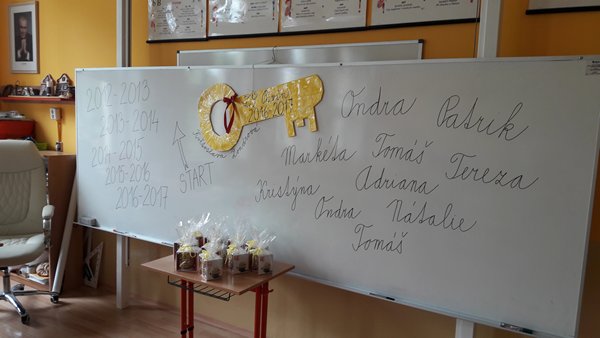 2012-2013
2013-2014
2014-2015
2015-2016
2016-2017
START
2016-2017
Ondra Patrik
Markéta Tomáš Tereza
Kristýna Adriana
Ondra Nátalie
Tomáš